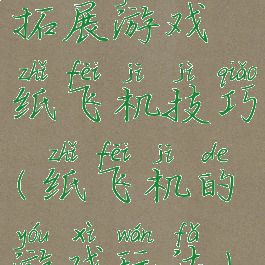 拓展游戏
zhǐ fēi jī jì qiǎo
纸飞机技巧
zhǐ fēi jī de
(纸飞机的
yóu xì wán fǎ
游戏玩法)